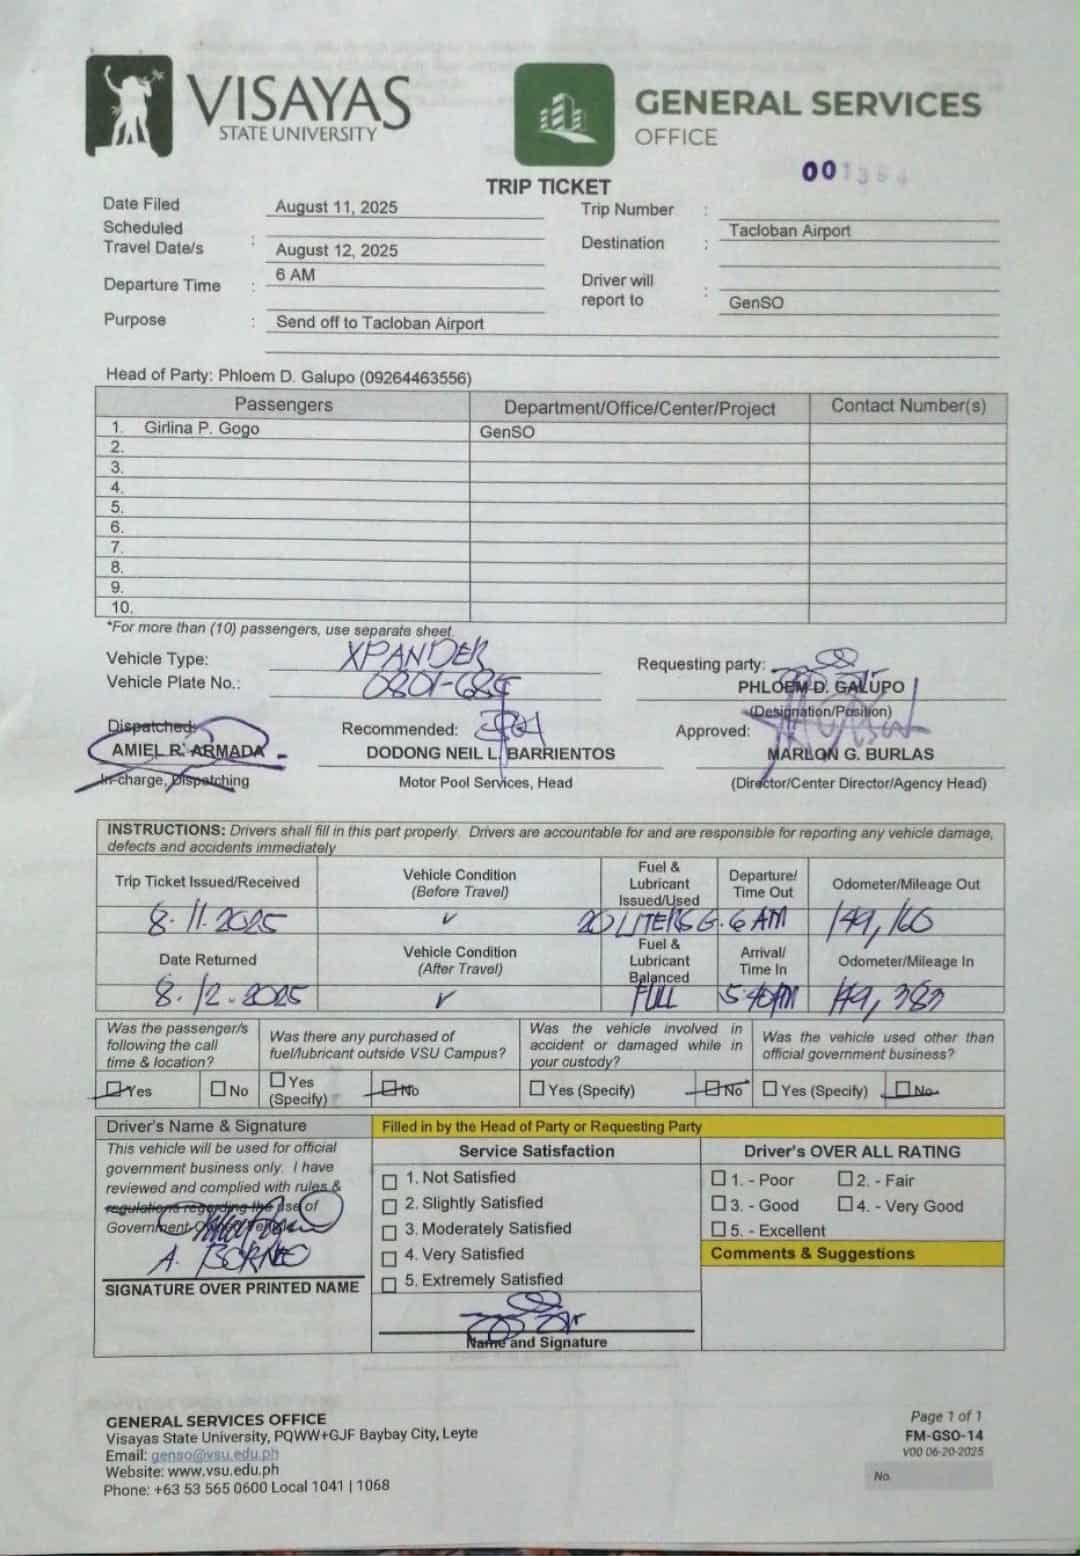 VISAYAS
STATE UNIVERSITY
GENERAL SERVICES
OFFICE
001354
TRIP TICKET
Date Filed August 11, 2025
Trip Number :
Scheduled
Travel Date/s : August 12, 2025
Destination : Tacloban Airport
Departure Time : 6 AM
Driver will
report to : GenSO
Purpose : Send off to Tacloban Airport
Head of Party: Phloem D. Galupo (09264463556)
Passengers Department/Office/Center/Project Contact Number(s)
1. Girlina P. Gogo GenSO
2.
3.
4.
5.
6.
7.
8.
9.
10.
*For more than (10) passengers, use separate sheet.
Vehicle Type: XPANDER
Vehicle Plate No.:
Requesting party:
PHLOEM D. GALUPO
(Designation/Position)
Dispatched:
AMIEL R. ARMADA
In-charge, Dispatching
Recommended:
DODONG NEIL L. BARRIENTOS
Motor Pool Services, Head
Approved:
MARLON G. BURLAS
(Director/Center Director/Agency Head)
INSTRUCTIONS: Drivers shall fill in this part properly. Drivers are accountable for and are responsible for reporting any vehicle damage,
defects and accidents immediately
Trip Ticket Issued/Received Vehicle Condition (Before Travel) Fuel & Lubricant Issued/Used Departure/ Time Out Odometer/Mileage Out
8.11.2025 ✓ 20 LITERS G. 6 AM 149,160
Date Returned Vehicle Condition (After Travel) Fuel & Lubricant Balanced Arrival/ Time In Odometer/Mileage In
8.12.2025 ✓ FULL 5:40PM 149,383
Was the passenger/s
following the call
time & location?
Was there any purchased of
fuel/lubricant outside VSU Campus?
Was the vehicle involved in
accident or damaged while in
your custody?
Was the vehicle used other than
official government business?
Yes No Yes (Specify) No Yes (Specify) No Yes (Specify) No
Driver's Name & Signature
This vehicle will be used for official
government business only. I have
reviewed and complied with rules &
regulations regarding the use of
Government
A. BORNEO
SIGNATURE OVER PRINTED NAME
Filled in by the Head of Party or Requesting Party
Service Satisfaction
1. Not Satisfied
2. Slightly Satisfied
3. Moderately Satisfied
4. Very Satisfied
5. Extremely Satisfied
Name and Signature
Driver's OVER ALL RATING
1. - Poor 2. - Fair
3. - Good 4. - Very Good
5. - Excellent
Comments & Suggestions
GENERAL SERVICES OFFICE
Visayas State University, PQWW+GJF Baybay City, Leyte
Email: genso@vsu.edu.ph
Website: www.vsu.edu.ph
Phone: +63 53 565 0600 Local 1041 | 1068
Page 1 of 1
FM-GSO-14
V00 06-20-2025
No.